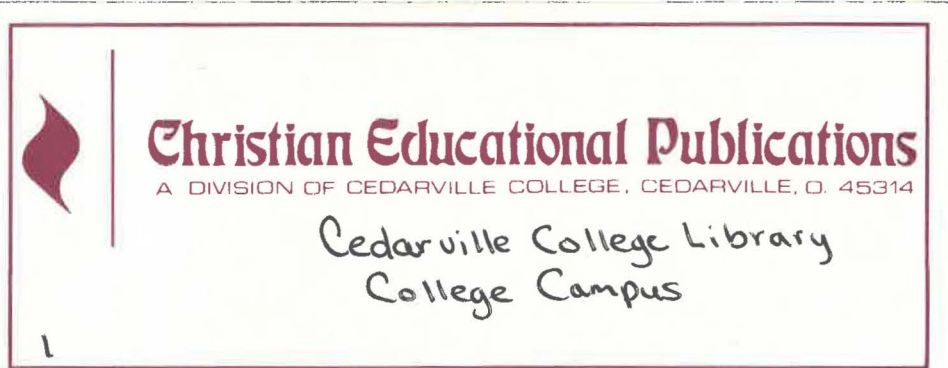 Christian Educational Publications
A DIVISION OF CEDARVILLE COLLEGE, CEDARVILLE, O. 45314
Cedarville College Library
College Campus
1